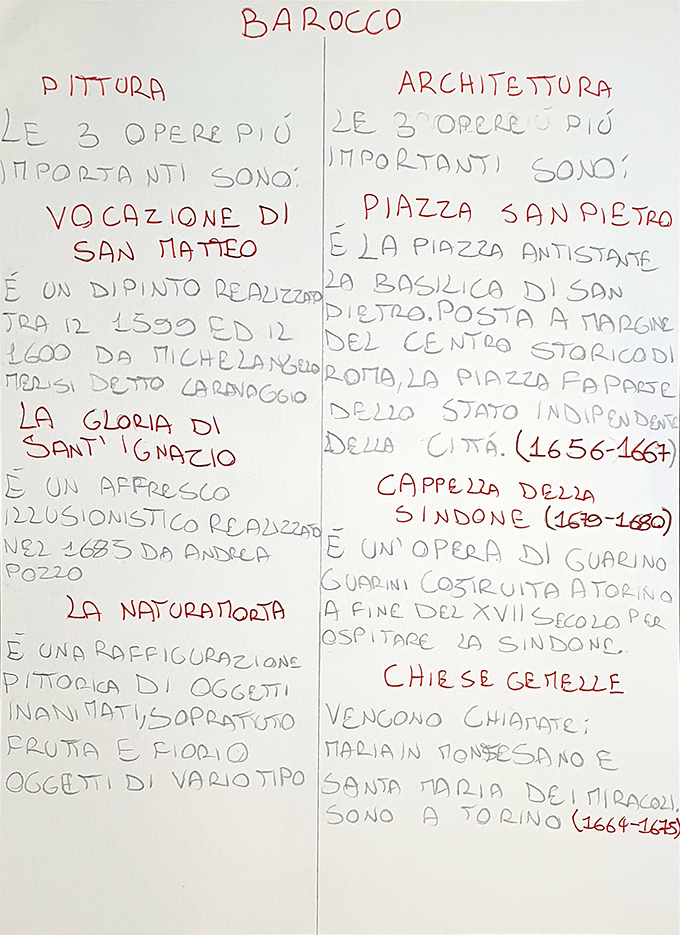 BAROCCO
PITTURA
LE 3 OPERE PIÚ
IMPORTANTI SONO:
VOCAZIONE DI
SAN MATTEO
É UN DIPINTO REALIZZATO
TRA IL 1599 ED IL
1600 DA MICHELANGELO
MERISI DETTO CARAVAGGIO
LA GLORIA DI
SANT' IGNAZIO
É UN AFFRESCO
ILLUSIONISTICO REALIZZATO
NEL 1685 DA ANDREA
POZZO
LA NATURA MORTA
É UNA RAFFIGURAZIONE
PITTORICA DI OGGETTI
INANIMATI, SOPRATUTO
FRUTTA E FIORI O
OGGETTI DI VARIO TIPO
ARCHITETTURA
LE 3 OPERE PIÚ
IMPORTANTI SONO:
PIAZZA SAN PIETRO
É LA PIAZZA ANTISTANTE
LA BASILICA DI SAN
PIETRO. POSTA A MARGINE
DEL CENTRO STORICO DI
ROMA, LA PIAZZA FA PARTE
DELLO STATO INDIPENDENTE
DELLA CITTÁ. (1656-1667)
CAPPELLA DELLA
SINDONE (1679-1680)
É UN'OPERA DI GUARINO
GUARINI COSTRUITA A TORINO
A FINE DEL XVII SECOLO PER
OSPITARE LA SINDONE.
CHIESE GEMELLE
VENGONO CHIAMATE:
MARIA IN MONTESANO E
SANTA MARIA DEI MIRACOLI.
SONO A TORINO (1664-1675)